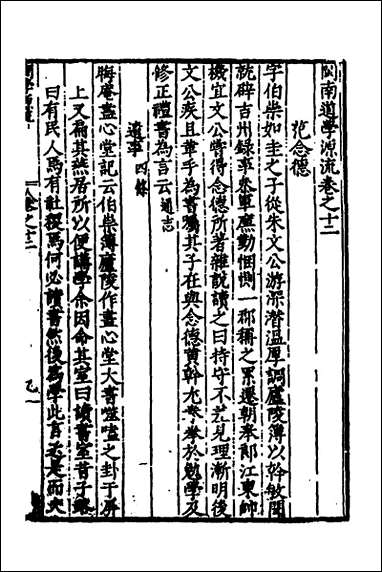 閩南道學源流卷之十二
范念德
字伯崇如圭之子從朱文公游深潛温厚調廬陵簿以幹敏聞
就辟吉州錄事參軍廉勤惻惻一郡稱之累遷朝奉郎江東帥
機宜文公嘗得念德所著雜說讀之曰持守不差見理漸明後
文公疾且革手為書囑其子在與念德黃幹尤拳拳於勉學及
修正禮書為言云通志
遺事四條
晦庵盡心堂記云伯崇簿廬陵作盡心堂大書噬嗑之卦于屏
上又扁其燕居所以便講學余因命其室曰讀書室昔子路
曰有民人焉有社稷焉何必讀書然後為學此言若是而夫
卷之十二